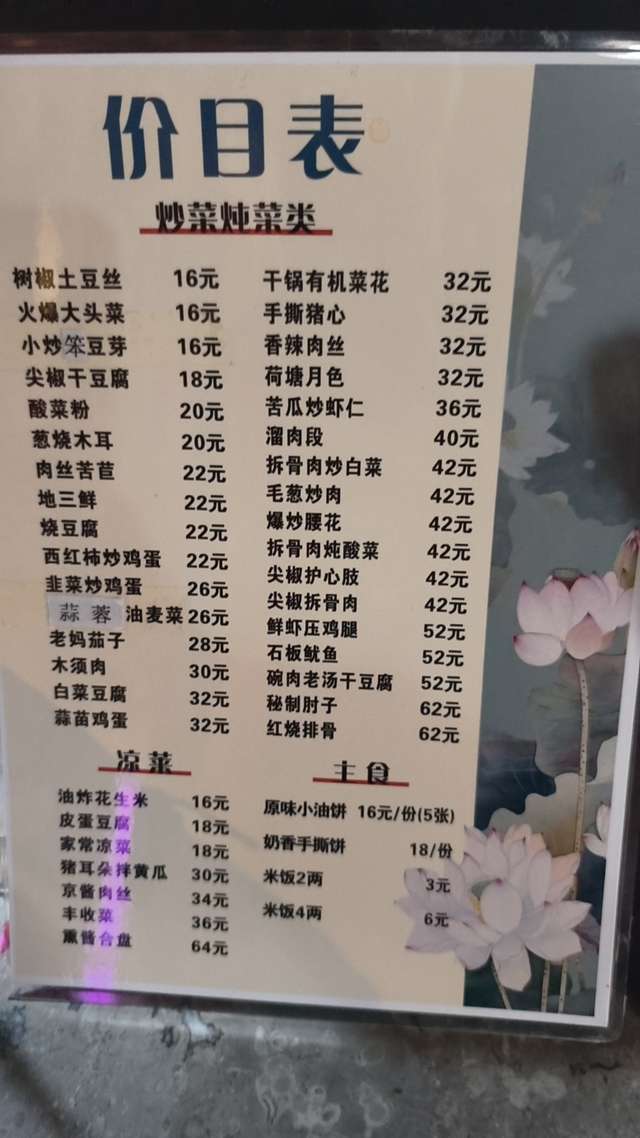 价目表
炒菜炖菜类
树椒土豆丝 16元
火爆大头菜 16元
小炒笨豆芽 16元
尖椒干豆腐 18元
酸菜粉 20元
葱烧木耳 20元
肉丝苦苣 22元
地三鲜 22元
烧豆腐 22元
西红柿炒鸡蛋 22元
韭菜炒鸡蛋 26元
蒜蓉油麦菜 26元
老妈茄子 28元
木须肉 30元
白菜豆腐 32元
蒜苗鸡蛋 32元
干锅有机菜花 32元
手撕猪心 32元
香辣肉丝 32元
荷塘月色 32元
苦瓜炒虾仁 36元
溜肉段 40元
拆骨肉炒白菜 42元
毛葱炒肉 42元
爆炒腰花 42元
拆骨肉炖酸菜 42元
尖椒护心肢 42元
尖椒拆骨肉 42元
鲜虾压鸡腿 52元
石板鱿鱼 52元
碗肉老汤干豆腐 52元
秘制肘子 62元
红烧排骨 62元
凉菜
油炸花生米 16元
皮蛋豆腐 18元
家常凉菜 18元
猪耳朵拌黄瓜 30元
京酱肉丝 34元
丰收菜 36元
熏酱合盘 64元
主食
原味小油饼 16元/份(5张)
奶香手撕饼 18/份
米饭2两 3元
米饭4两 6元